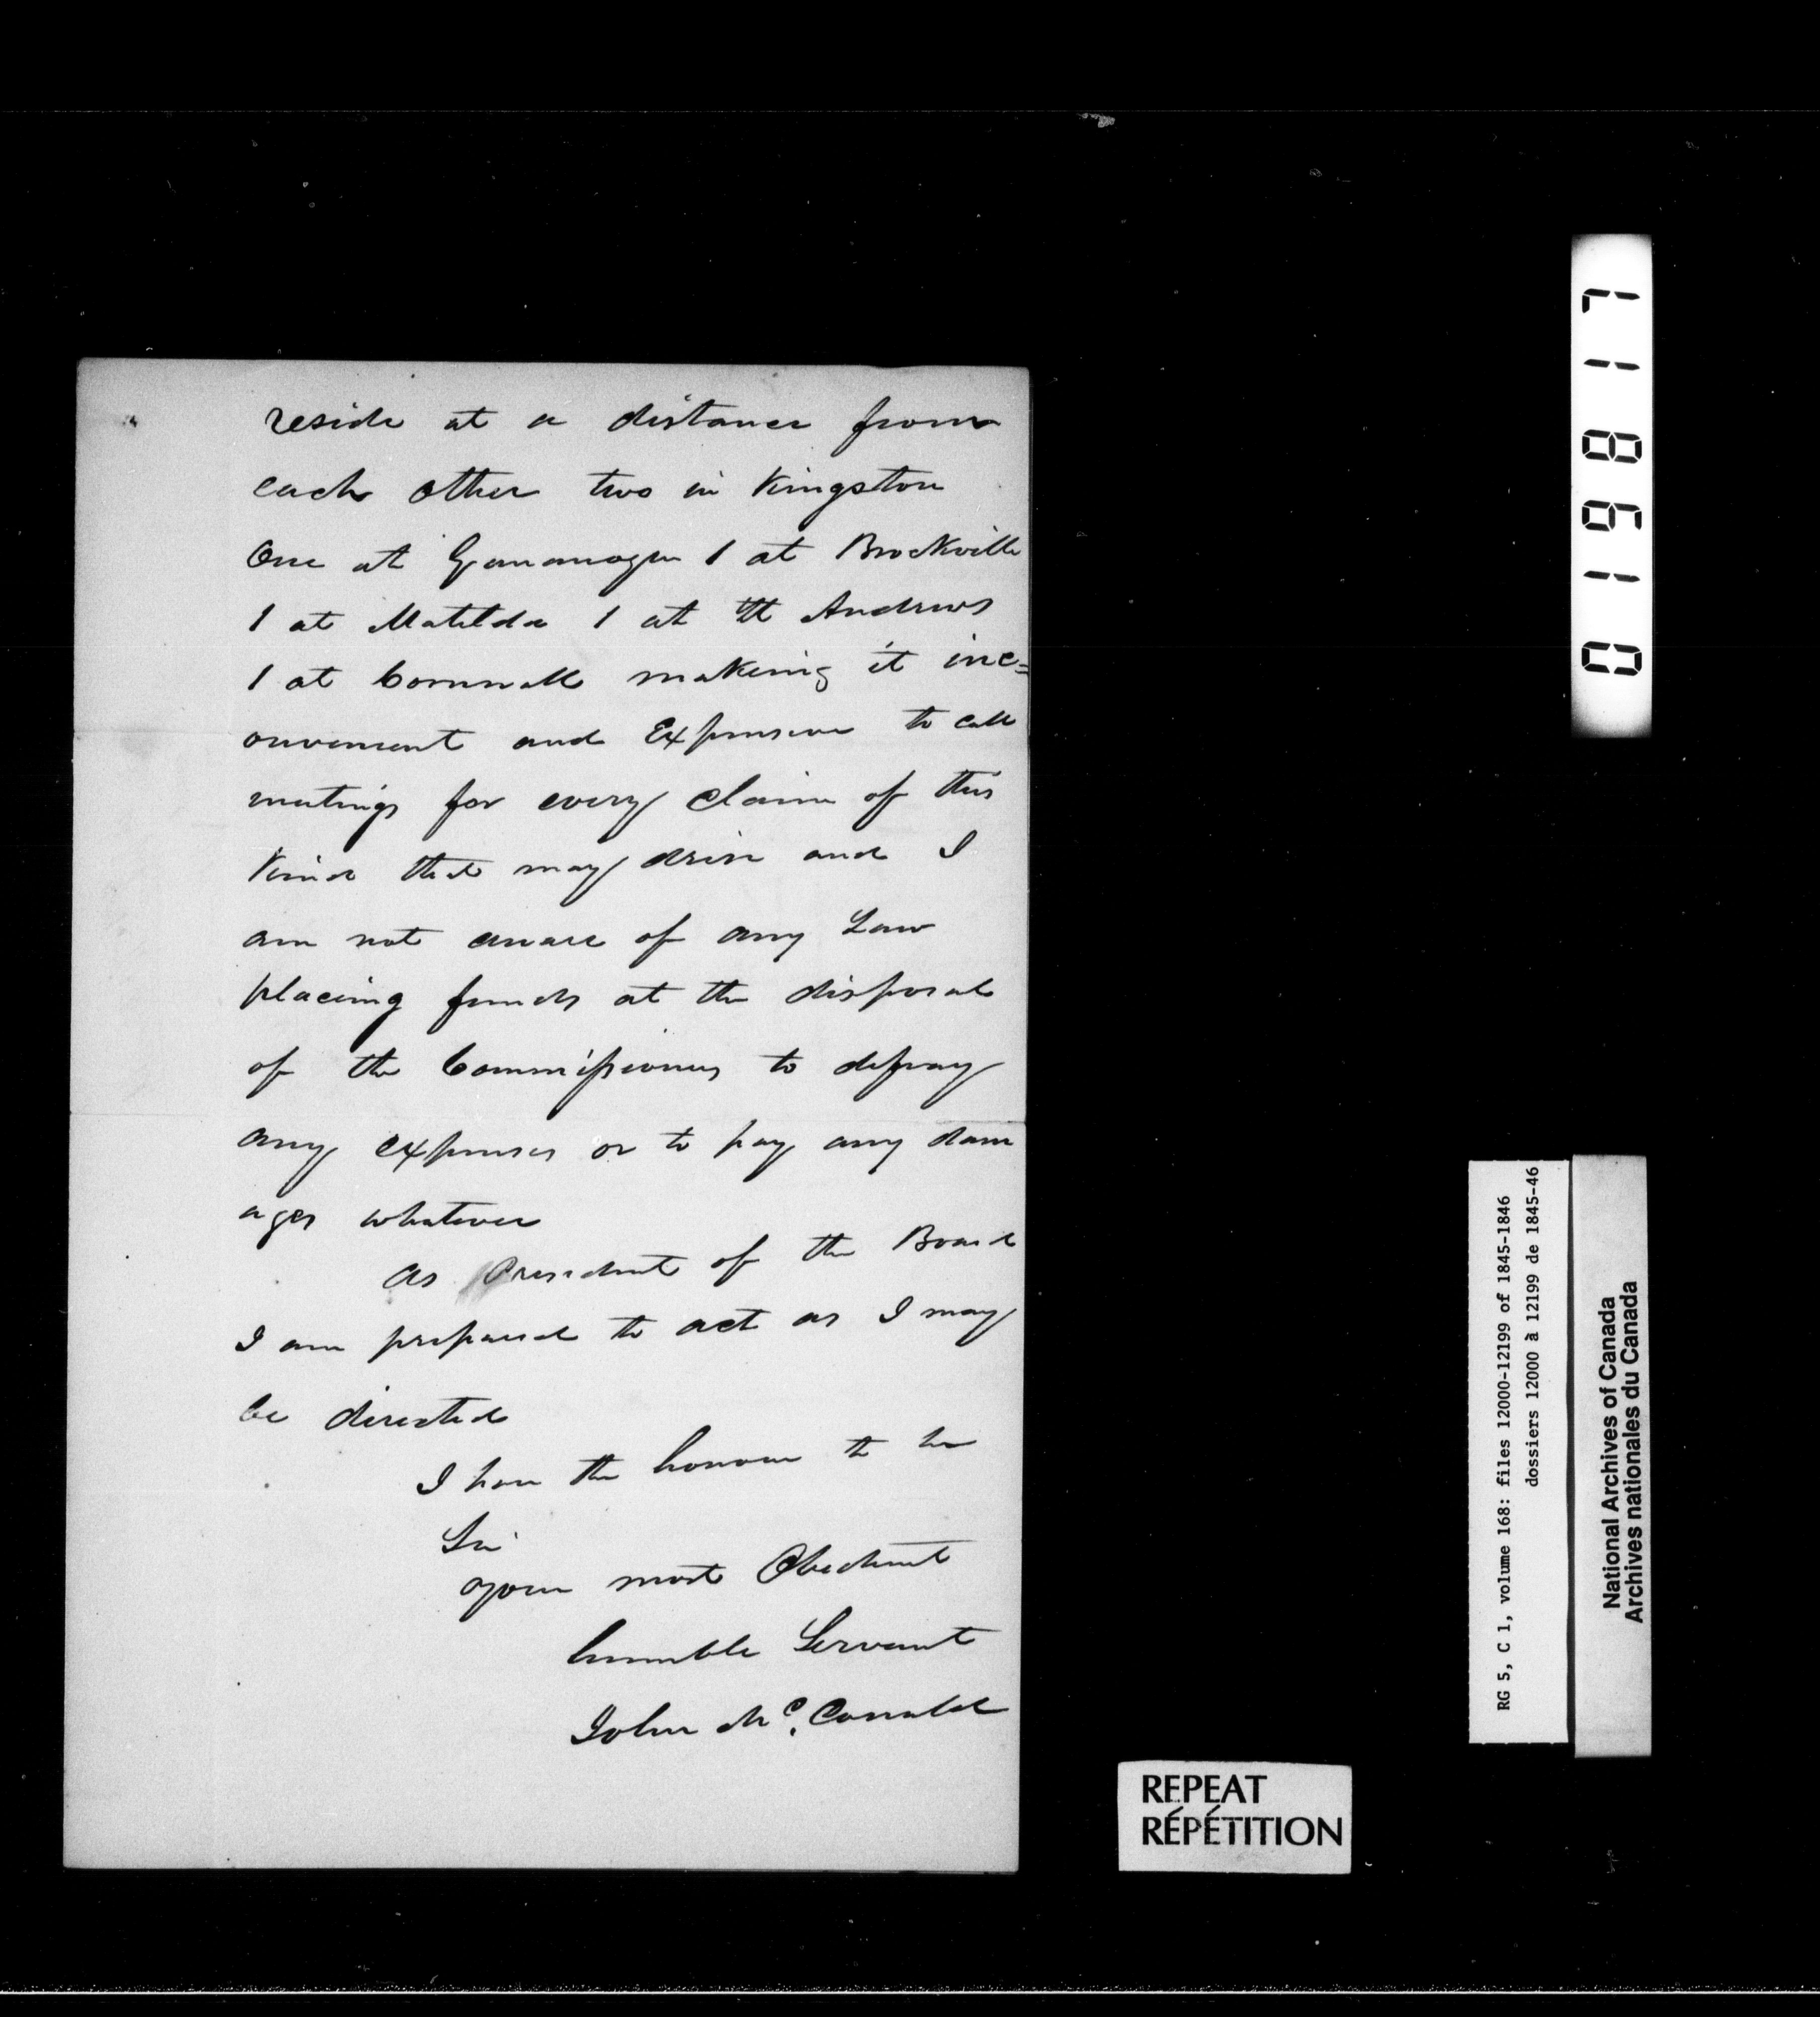 reside at a distance from
each other two in Kingston
One at Gananoque 1 at Brockville
1 at Matilda 1 at St Andrews
1 at Cornwall making it inc=
onvenient and Expensive to call
meetings for every claim of this
kind that may arise and I
am not aware of any Law
placing funds at the disposal
of the Commissioners to defray
any expenses or to pay any dam
ages whatever
As President of the Board
I am prepared to act as I may
be directed
I have the honour to be
Sir
your most Obedient
humble Servant
John Mc. Donald
019817
RG 5, C 1, volume 168: files 12000-12199 of 1845-1846
dossiers 12000 à 12199 de 1845-46
National Archives of Canada
Archives nationales du Canada
REPEAT
RÉPÉTITION